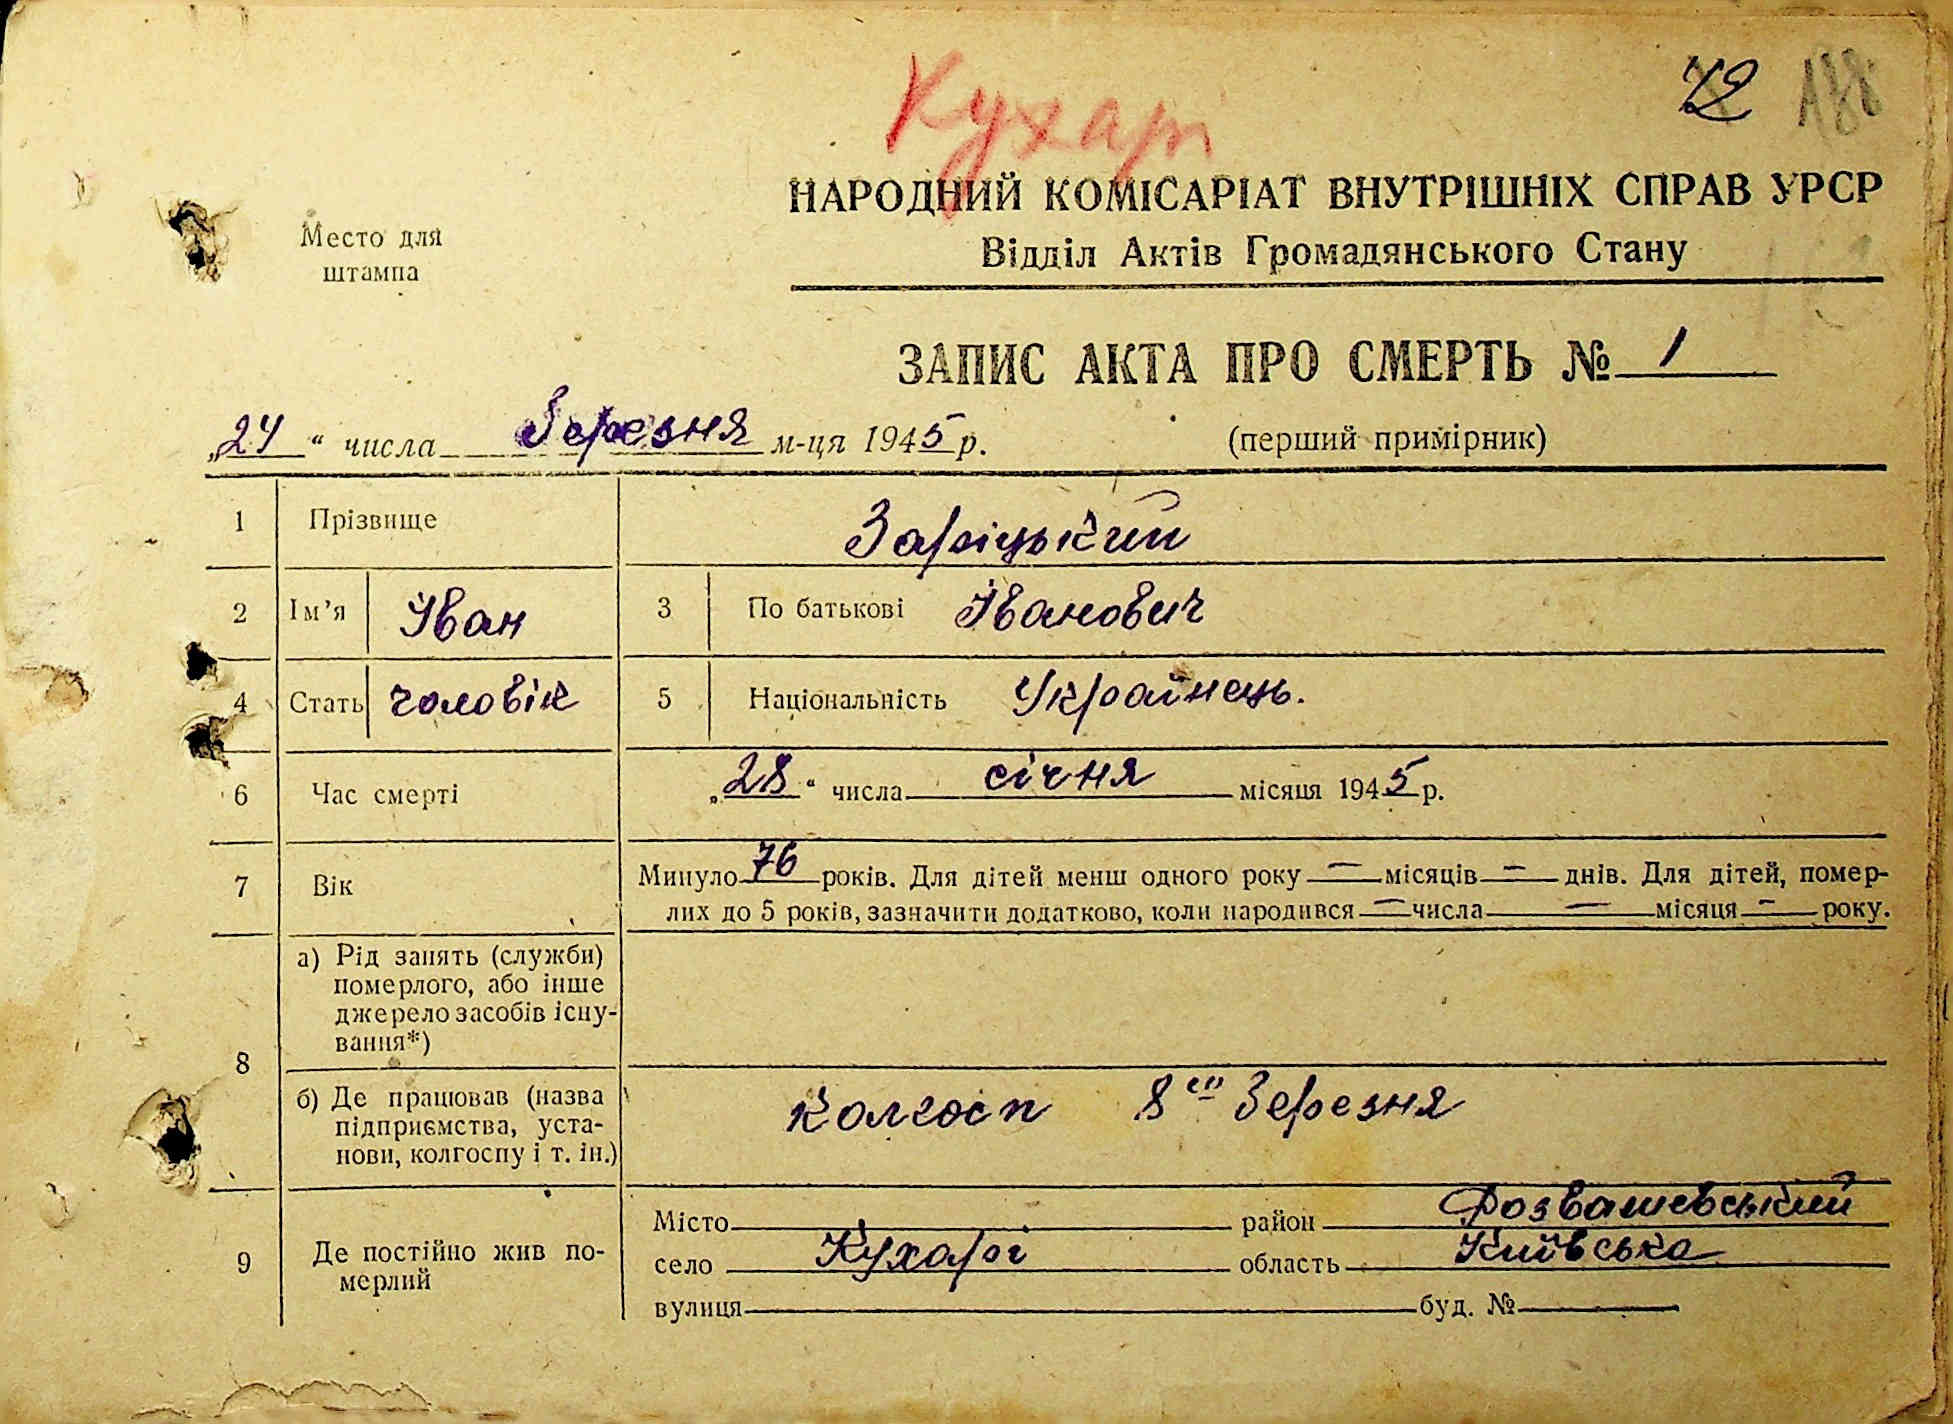 Кухарі
72 188
НАРОДНИЙ КОМІСАРІАТ ВНУТРІШНІХ СПРАВ УРСР
Відділ Актів Громадянського Стану
Место для
штампа
ЗАПИС АКТА ПРО СМЕРТЬ № 1
„24“ числа березня м-ця 1945 р.
(перший примірник)
1 Прізвище Заріцький
2 Ім’я Іван 3 По батькові Іванович
4 Стать чоловік 5 Національність Українець.
6 Час смерті „28“ числа січня місяця 1945 р.
7 Вік Минуло 76 років. Для дітей менш одного року — місяців — днів. Для дітей, помер-
лих до 5 років, зазначити додатково, коли народився — числа — місяця — року.
8 а) Рід занять (служби)
померлого, або інше
джерело засобів існу-
вання*)
б) Де працював (назва
підприємства, уста-
нови, колгоспу і т. ін.)
Колгосп 8го Березня
9 Де постійно жив по-
мерлий
Місто район Розважевський
село Кухарі область Київська
вулиця буд. №